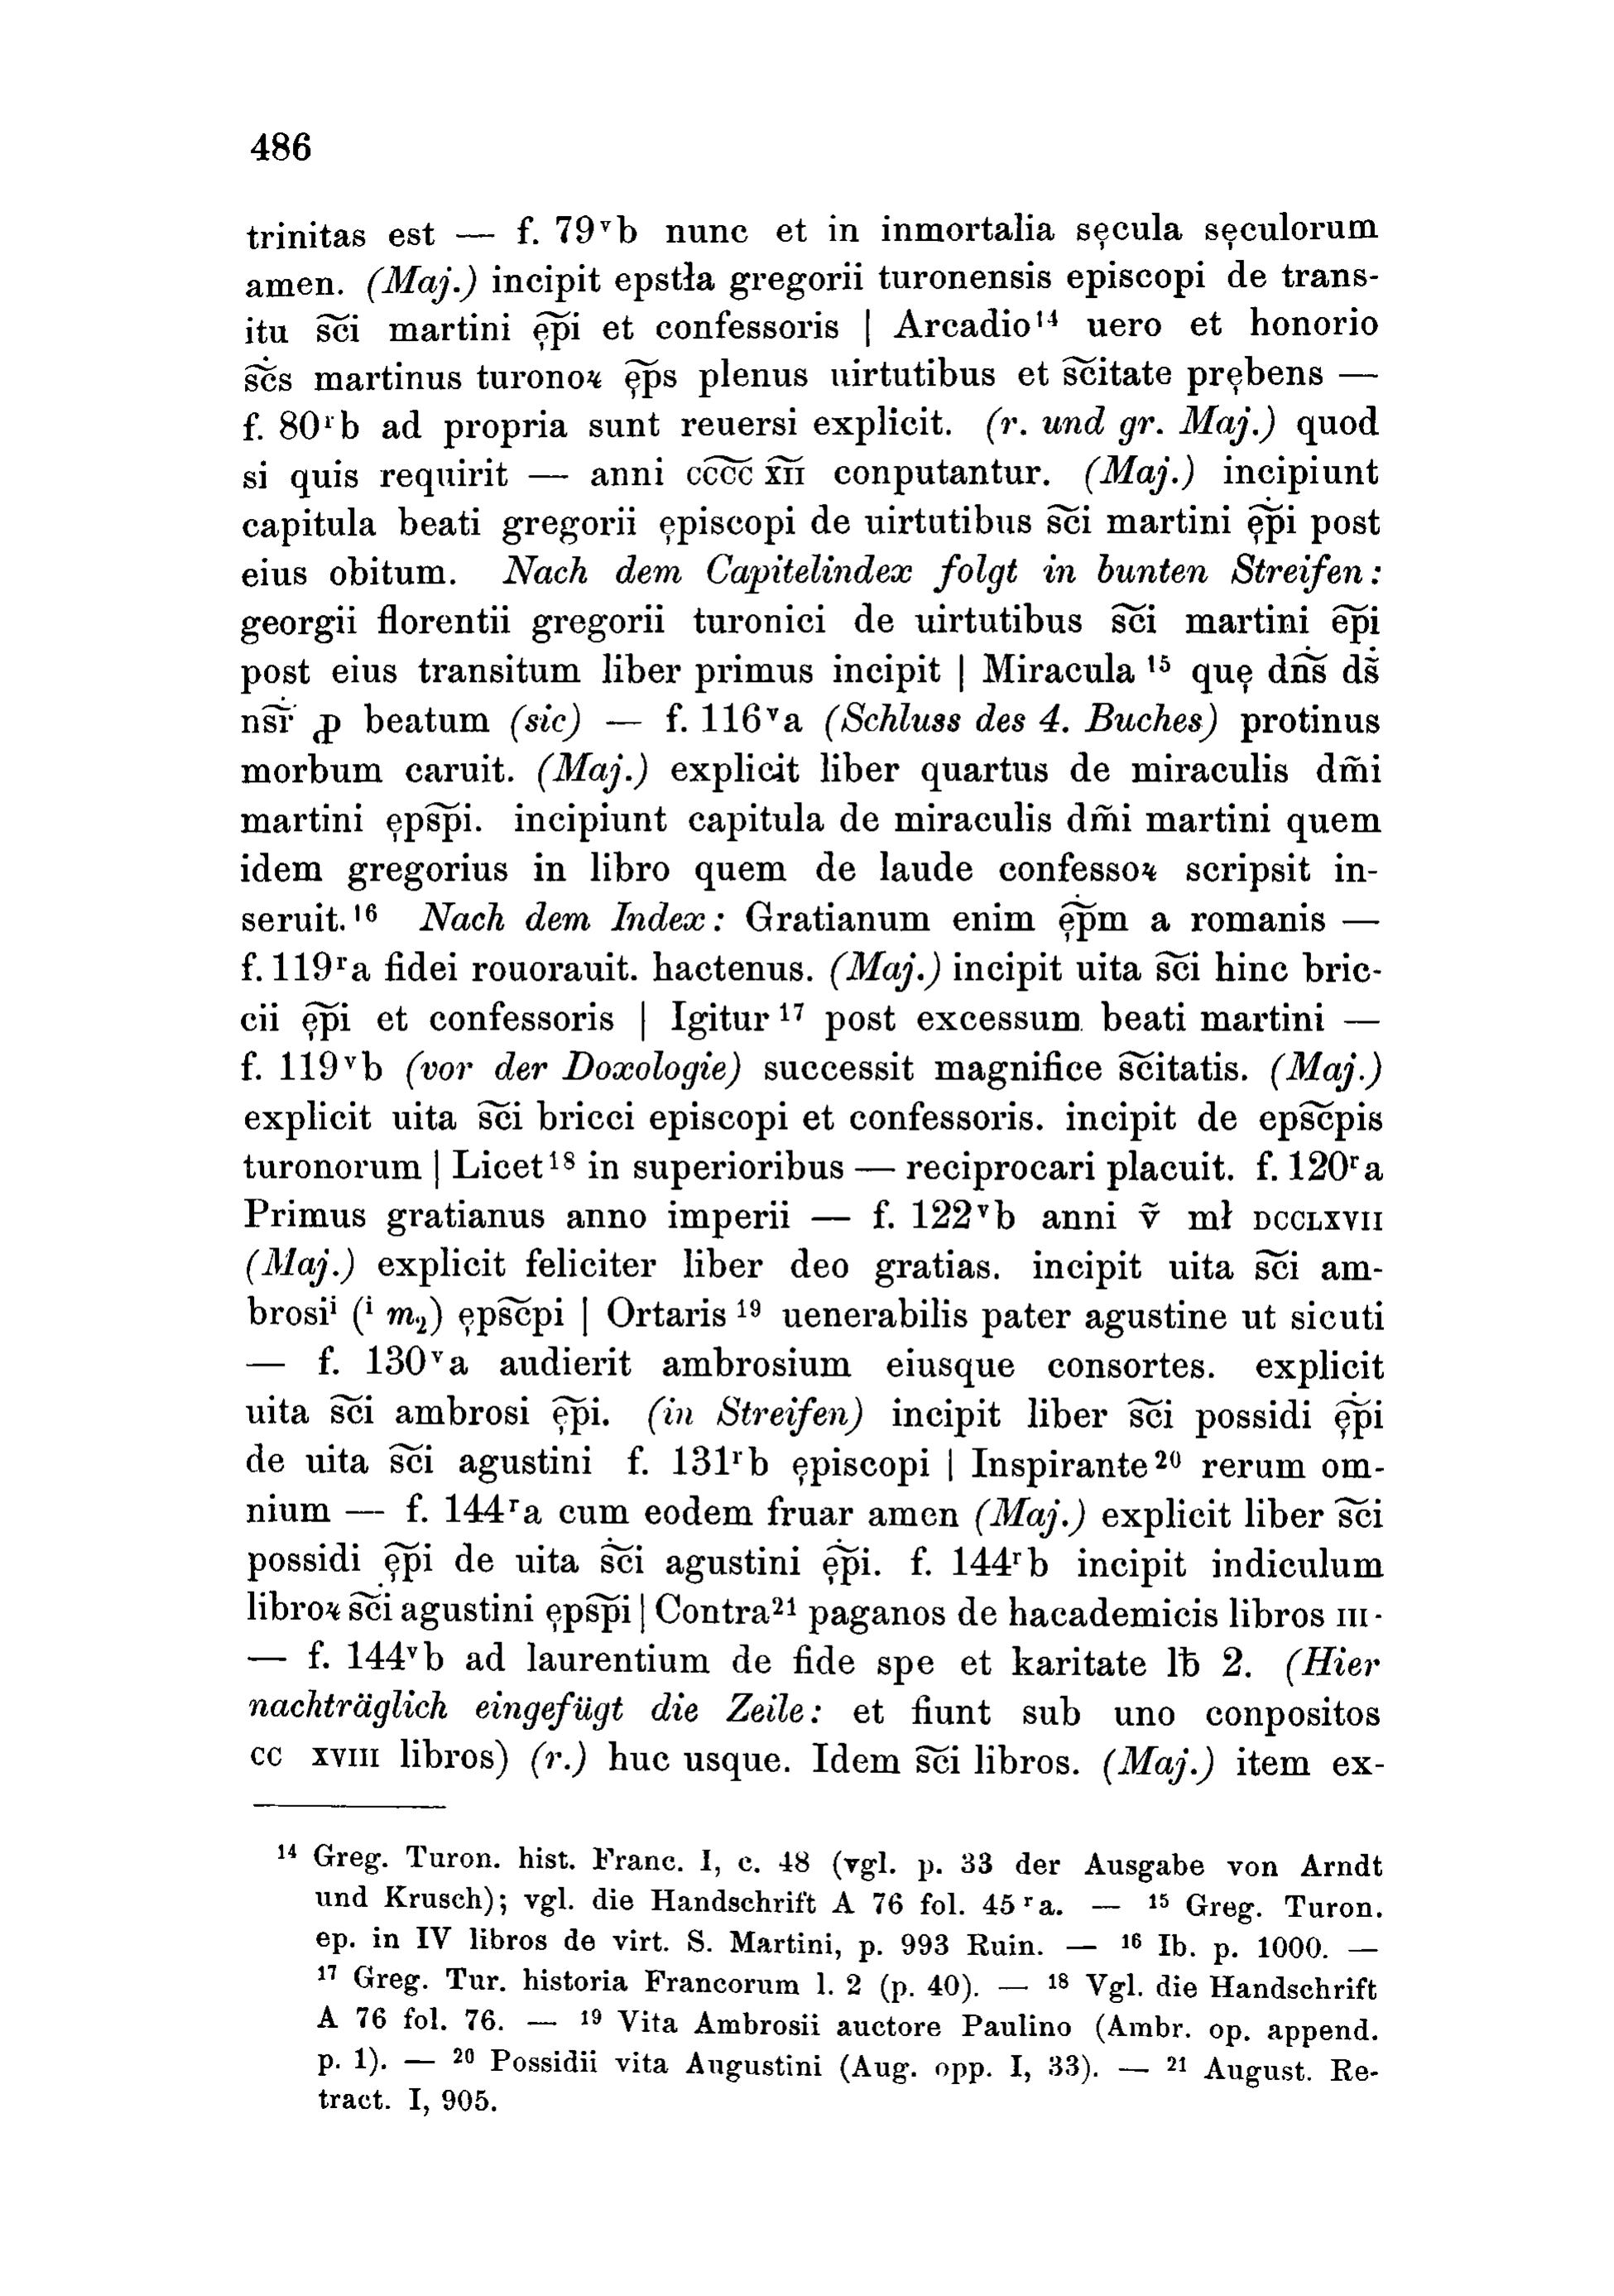 486
trinitas est — f. 79ᵛb nunc et in inmortalia sęcula sęculorum
amen. (Maj.) incipit epstła gregorii turonensis episcopi de trans-
itu s͠ci martini ę͠pi et confessoris | Arcadio¹⁴ uero et honorio
s͠cs martinus turonoꝝ ę͠ps plenus uirtutibus et s͠citate prębens —
f. 80ʳb ad propria sunt reuersi explicit. (r. und gr. Maj.) quod
si quis requirit — anni cc͠cc x͠ii conputantur. (Maj.) incipiunt
capitula beati gregorii ępiscopi de uirtutibus s͠ci martini ę͠pi post
eius obitum. Nach dem Capitelindex folgt in bunten Streifen:
georgii florentii gregorii turonici de uirtutibus s͠ci martini e͠pi
post eius transitum liber primus incipit | Miracula ¹⁵ quę dn͠s ds͠
ns͠r ꝓ beatum (sic) — f. 116ᵛa (Schluss des 4. Buches) protinus
morbum caruit. (Maj.) explicit liber quartus de miraculis dm̃i
martini ęps͠pi. incipiunt capitula de miraculis dm̃i martini quem
idem gregorius in libro quem de laude confessoꝝ scripsit in-
seruit.¹⁶ Nach dem Index: Gratianum enim ę͠pm a romanis —
f. 119ʳa fidei rouorauit. hactenus. (Maj.) incipit uita s͠ci hinc bric-
cii ę͠pi et confessoris | Igitur ¹⁷ post excessum beati martini —
f. 119ᵛb (vor der Doxologie) successit magnifice s͠citatis. (Maj.)
explicit uita s͠ci bricci episcopi et confessoris. incipit de eps͠cpis
turonorum | Licet¹⁸ in superioribus — reciprocari placuit. f. 120ʳa
Primus gratianus anno imperii — f. 122ᵛb anni ṽ mł DCCLXVII
(Maj.) explicit feliciter liber deo gratias. incipit uita s͠ci am-
brosiⁱ (ⁱ m₂) ęps͠cpi | Ortaris ¹⁹ uenerabilis pater agustine ut sicuti
— f. 130ᵛa audierit ambrosium eiusque consortes. explicit
uita s͠ci ambrosi ę͠pi. (in Streifen) incipit liber s͠ci possidi ę͠pi
de uita s͠ci agustini f. 131ʳb ępiscopi | Inspirante²⁰ rerum om-
nium — f. 144ʳa cum eodem fruar amen (Maj.) explicit liber s͠ci
possidi ę͠pi de uita s͠ci agustini ę͠pi. f. 144ʳb incipit indiculum
libroꝝ s͠ci agustini ęps͠pi | Contra²¹ paganos de hacademicis libros III·
— f. 144ᵛb ad laurentium de fide spe et karitate lƀ 2. (Hier
nachträglich eingefügt die Zeile: et fiunt sub uno conpositos
cc XVIII libros) (r.) huc usque. Idem s͠ci libros. (Maj.) item ex-
¹⁴ Greg. Turon. hist. Franc. I, c. 48 (vgl. p. 33 der Ausgabe von Arndt
und Krusch); vgl. die Handschrift A 76 fol. 45ʳa. — ¹⁵ Greg. Turon.
ep. in IV libros de virt. S. Martini, p. 993 Ruin. — ¹⁶ Ib. p. 1000. —
¹⁷ Greg. Tur. historia Francorum l. 2 (p. 40). — ¹⁸ Vgl. die Handschrift
A 76 fol. 76. — ¹⁹ Vita Ambrosii auctore Paulino (Ambr. op. append.
p. 1). — ²⁰ Possidii vita Augustini (Aug. opp. I, 33). — ²¹ August. Re-
tract. I, 905.